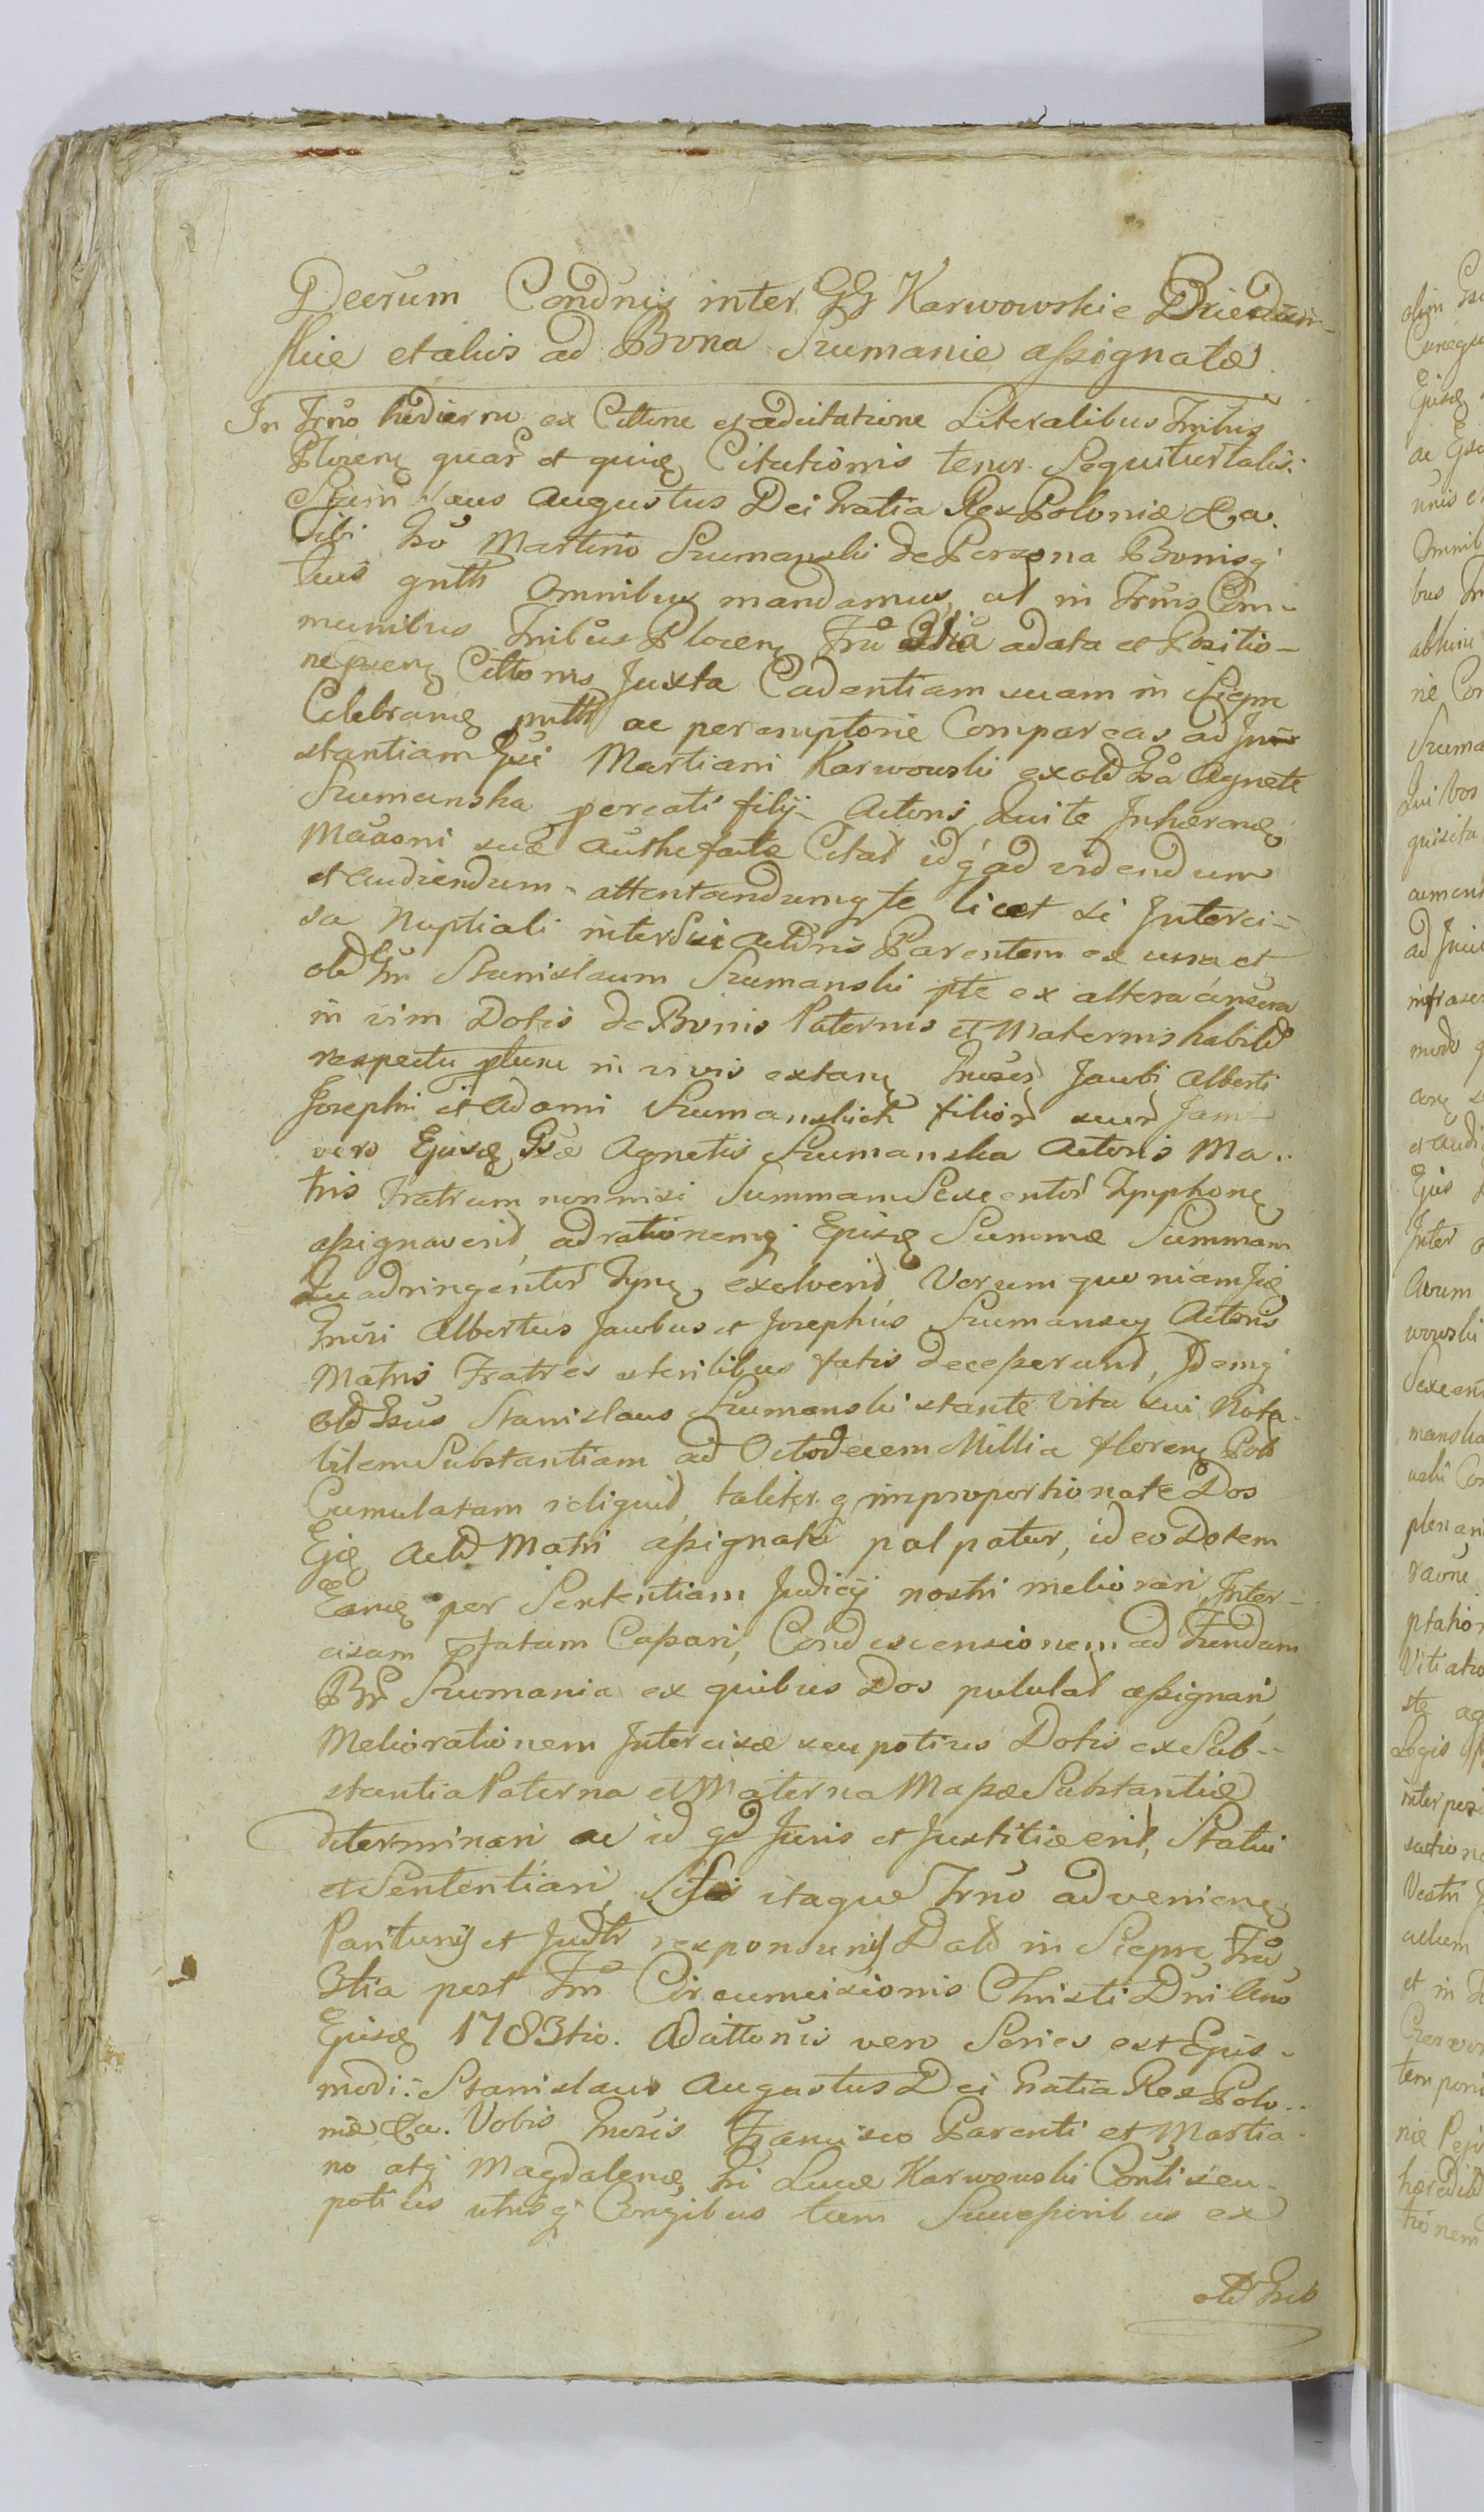 Decrum Condnis inter GG Karwowskie Dziedzin-
skie et alios ad Bona Szumanie assignatæ
In Trno hodierno ex Cittne et adcitatione Literalibus Tribus
Plocen quar et quin Citationis tenor Sequitur talis:
Stanislaus Augustus Dei Gratia Rex Poloniæ &a.
Tibi Gso Martino Szumanski de Persona Bonisq
tuis gnth Omnibus mandamus, ut in Trnis Com-
munibus Tribus Plocen Tru adata et Positio-
ne psen Cittonis Juxta Cadentiam suam in Siepre
Celebran pntt ac peremptorie Compareas ad In-
stantiam Gsi Martiani Karwowski ex old Gsa Agnete
Szumanska percati filij Actoris Qui te Inhæren
Maaoni suæ authefatæ Citat idq ad videndum
et audiendum attentandumq te licet si Interci-
sa Nuptiali inter Sui Actoris Parentem ex una et
old Gm Stanislaum Szumanski pte ex altera
in vim Dotis de Bonis Paternis et Maternis habitt
respectu plurū in vivis extan Gnosor Jacobi Alberti
Josephi et Adami Szumanskich filior suor Jam
vero Ejusd Gsæ Agnetis Szumanska Actoris Ma-
tris Fratrum nonnisi Summam Sexcentor Tynphon
assignaverit, ad rationemq Ejusd Summæ Summam
Quadringentor Tyn exolverit Verum quoniam
Gnosi Albertus Jacobus et Josephus Szumanscy Actoris
Matris Fratres sterilibus fatis decesserunt, Idemq
old Gsus Stanislaus Szumanski stante vita sui Nota-
bilem Substantiam ad Octodecem Millia floren Poll
Cumulatam reliquid, taliterq improportionate Dos
Ejus Actt Matri assignata palpatur, ideo Dotem
Eand per Sententiam Judicij nostri meliorari Inter-
cisam pfatam Cassari, Condescensionem ad Fundum
BB Szumania ex quibus Dos pululat assignari,
Meliorationem Intercisæ seu potius Dotis ex Sub-
stantia Paterna et Materna Massæ Substantiæ
determinari ac id qd Juris et Justitiæ erit, Statui
et Sententiari, itaque Trno advenien
Pariturus et Judtr responsurus Datt in Siepre Fria
3tia post Fm Circumcisionis Christi Dni Anno
Ejusd 1783tio. Adcittonis vero Series est Ejus-
modi: Stanislaus Augustus Dei Gratia Rex Polo-
niæ &a. Vobis Gnosis Francisco Parenti et Martia-
no atq Magdalenæ Gsi Lucæ Karwowski Conti seu
potius utrisq Congibus tum Successoribus ex
old Gnb